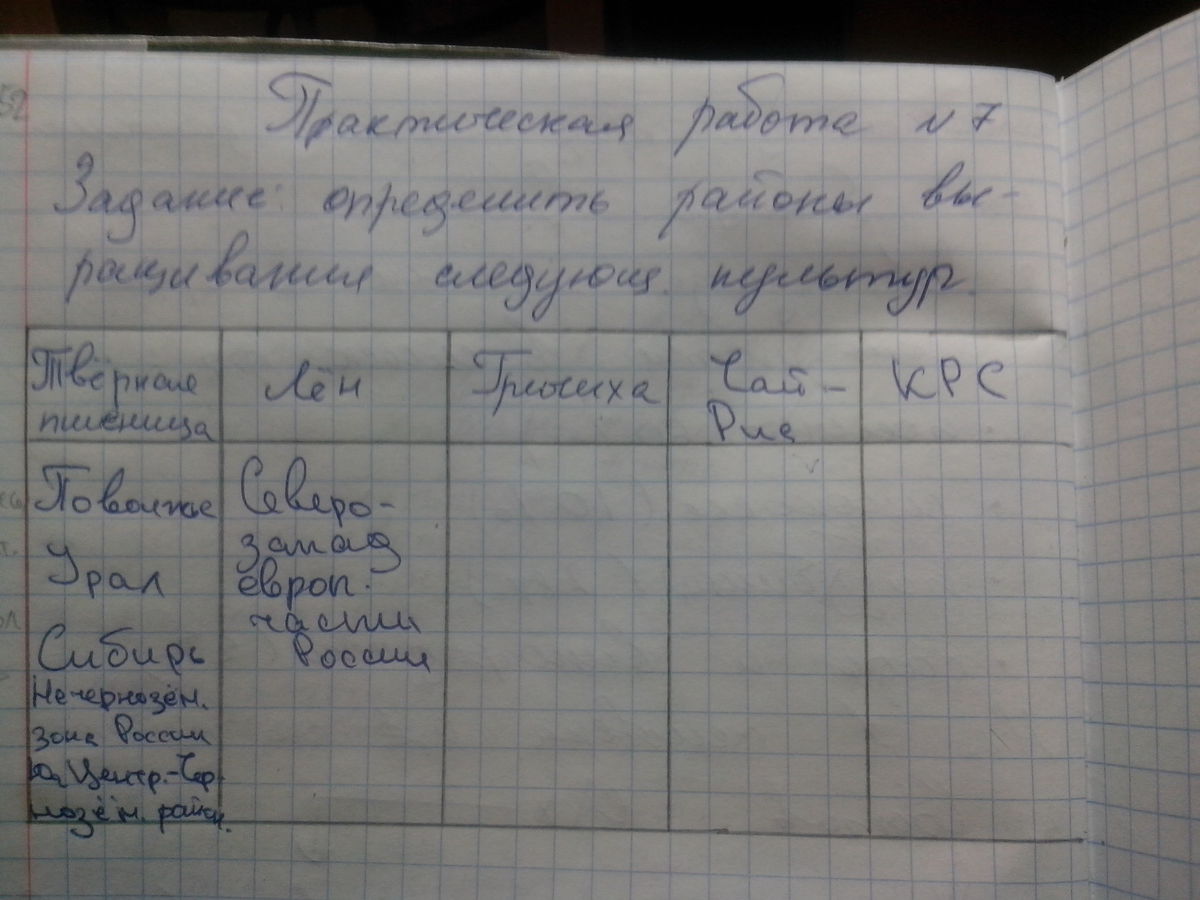 Практическая работа N 7
Задание: определить районы вы-
ращивания следующ. культур.
Твёрдая пшеница
Лён
Гречиха
Чай - Рис
КРС
Поволжье
Урал
Сибирь
Нечернозём.
зона России
Центр.-Чер
нозём. район.
Северо-
запад
европ.
части
России